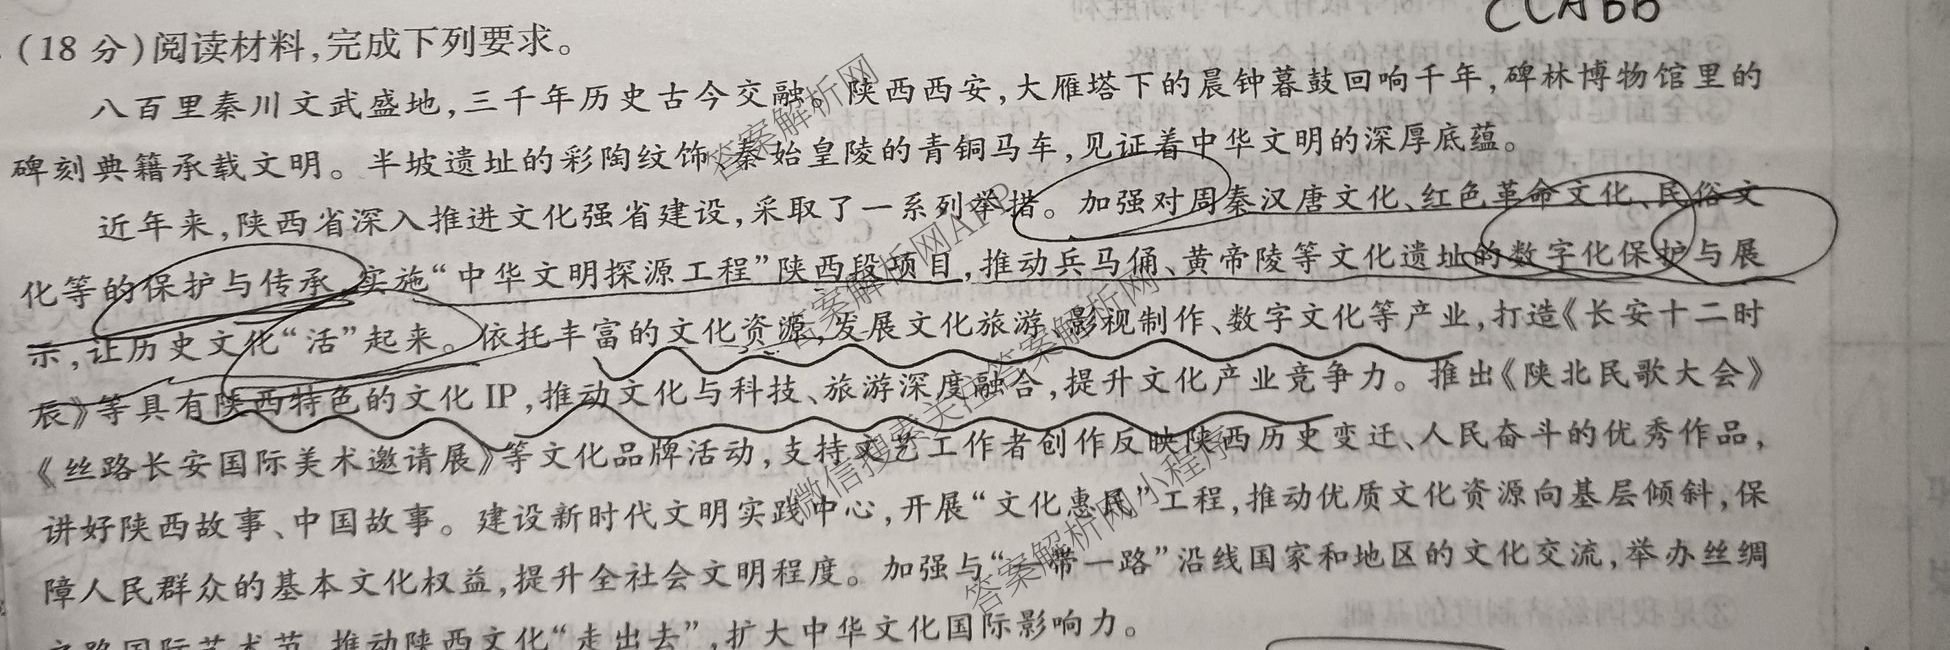 CCABB
(18 分)阅读材料,完成下列要求。
八百里秦川文武盛地,三千年历史古今交融。陕西西安,大雁塔下的晨钟暮鼓回响千年,碑林博物馆里的
碑刻典籍承载文明。半坡遗址的彩陶纹饰,秦始皇陵的青铜马车,见证着中华文明的深厚底蕴。
近年来,陕西省深入推进文化强省建设,采取了一系列举措。加强对周秦汉唐文化、红色革命文化、民俗文
化等的保护与传承,实施“中华文明探源工程”陕西段项目,推动兵马俑、黄帝陵等文化遗址的数字化保护与展
示,让历史文化“活”起来。依托丰富的文化资源,发展文化旅游、影视制作、数字文化等产业,打造《长安十二时
辰》等具有陕西特色的文化 IP,推动文化与科技、旅游深度融合,提升文化产业竞争力。推出《陕北民歌大会》
《丝路长安国际美术邀请展》等文化品牌活动,支持文艺工作者创作反映陕西历史变迁、人民奋斗的优秀作品,
讲好陕西故事、中国故事。建设新时代文明实践中心,开展“文化惠民”工程,推动优质文化资源向基层倾斜,保
障人民群众的基本文化权益,提升全社会文明程度。加强与“一带一路”沿线国家和地区的文化交流,举办丝绸
之路国际艺术节,推动陕西文化“走出去”,扩大中华文化国际影响力。
答案解析网
答案解析网APP
微信搜索关注答案解析网
答案解析网小程序